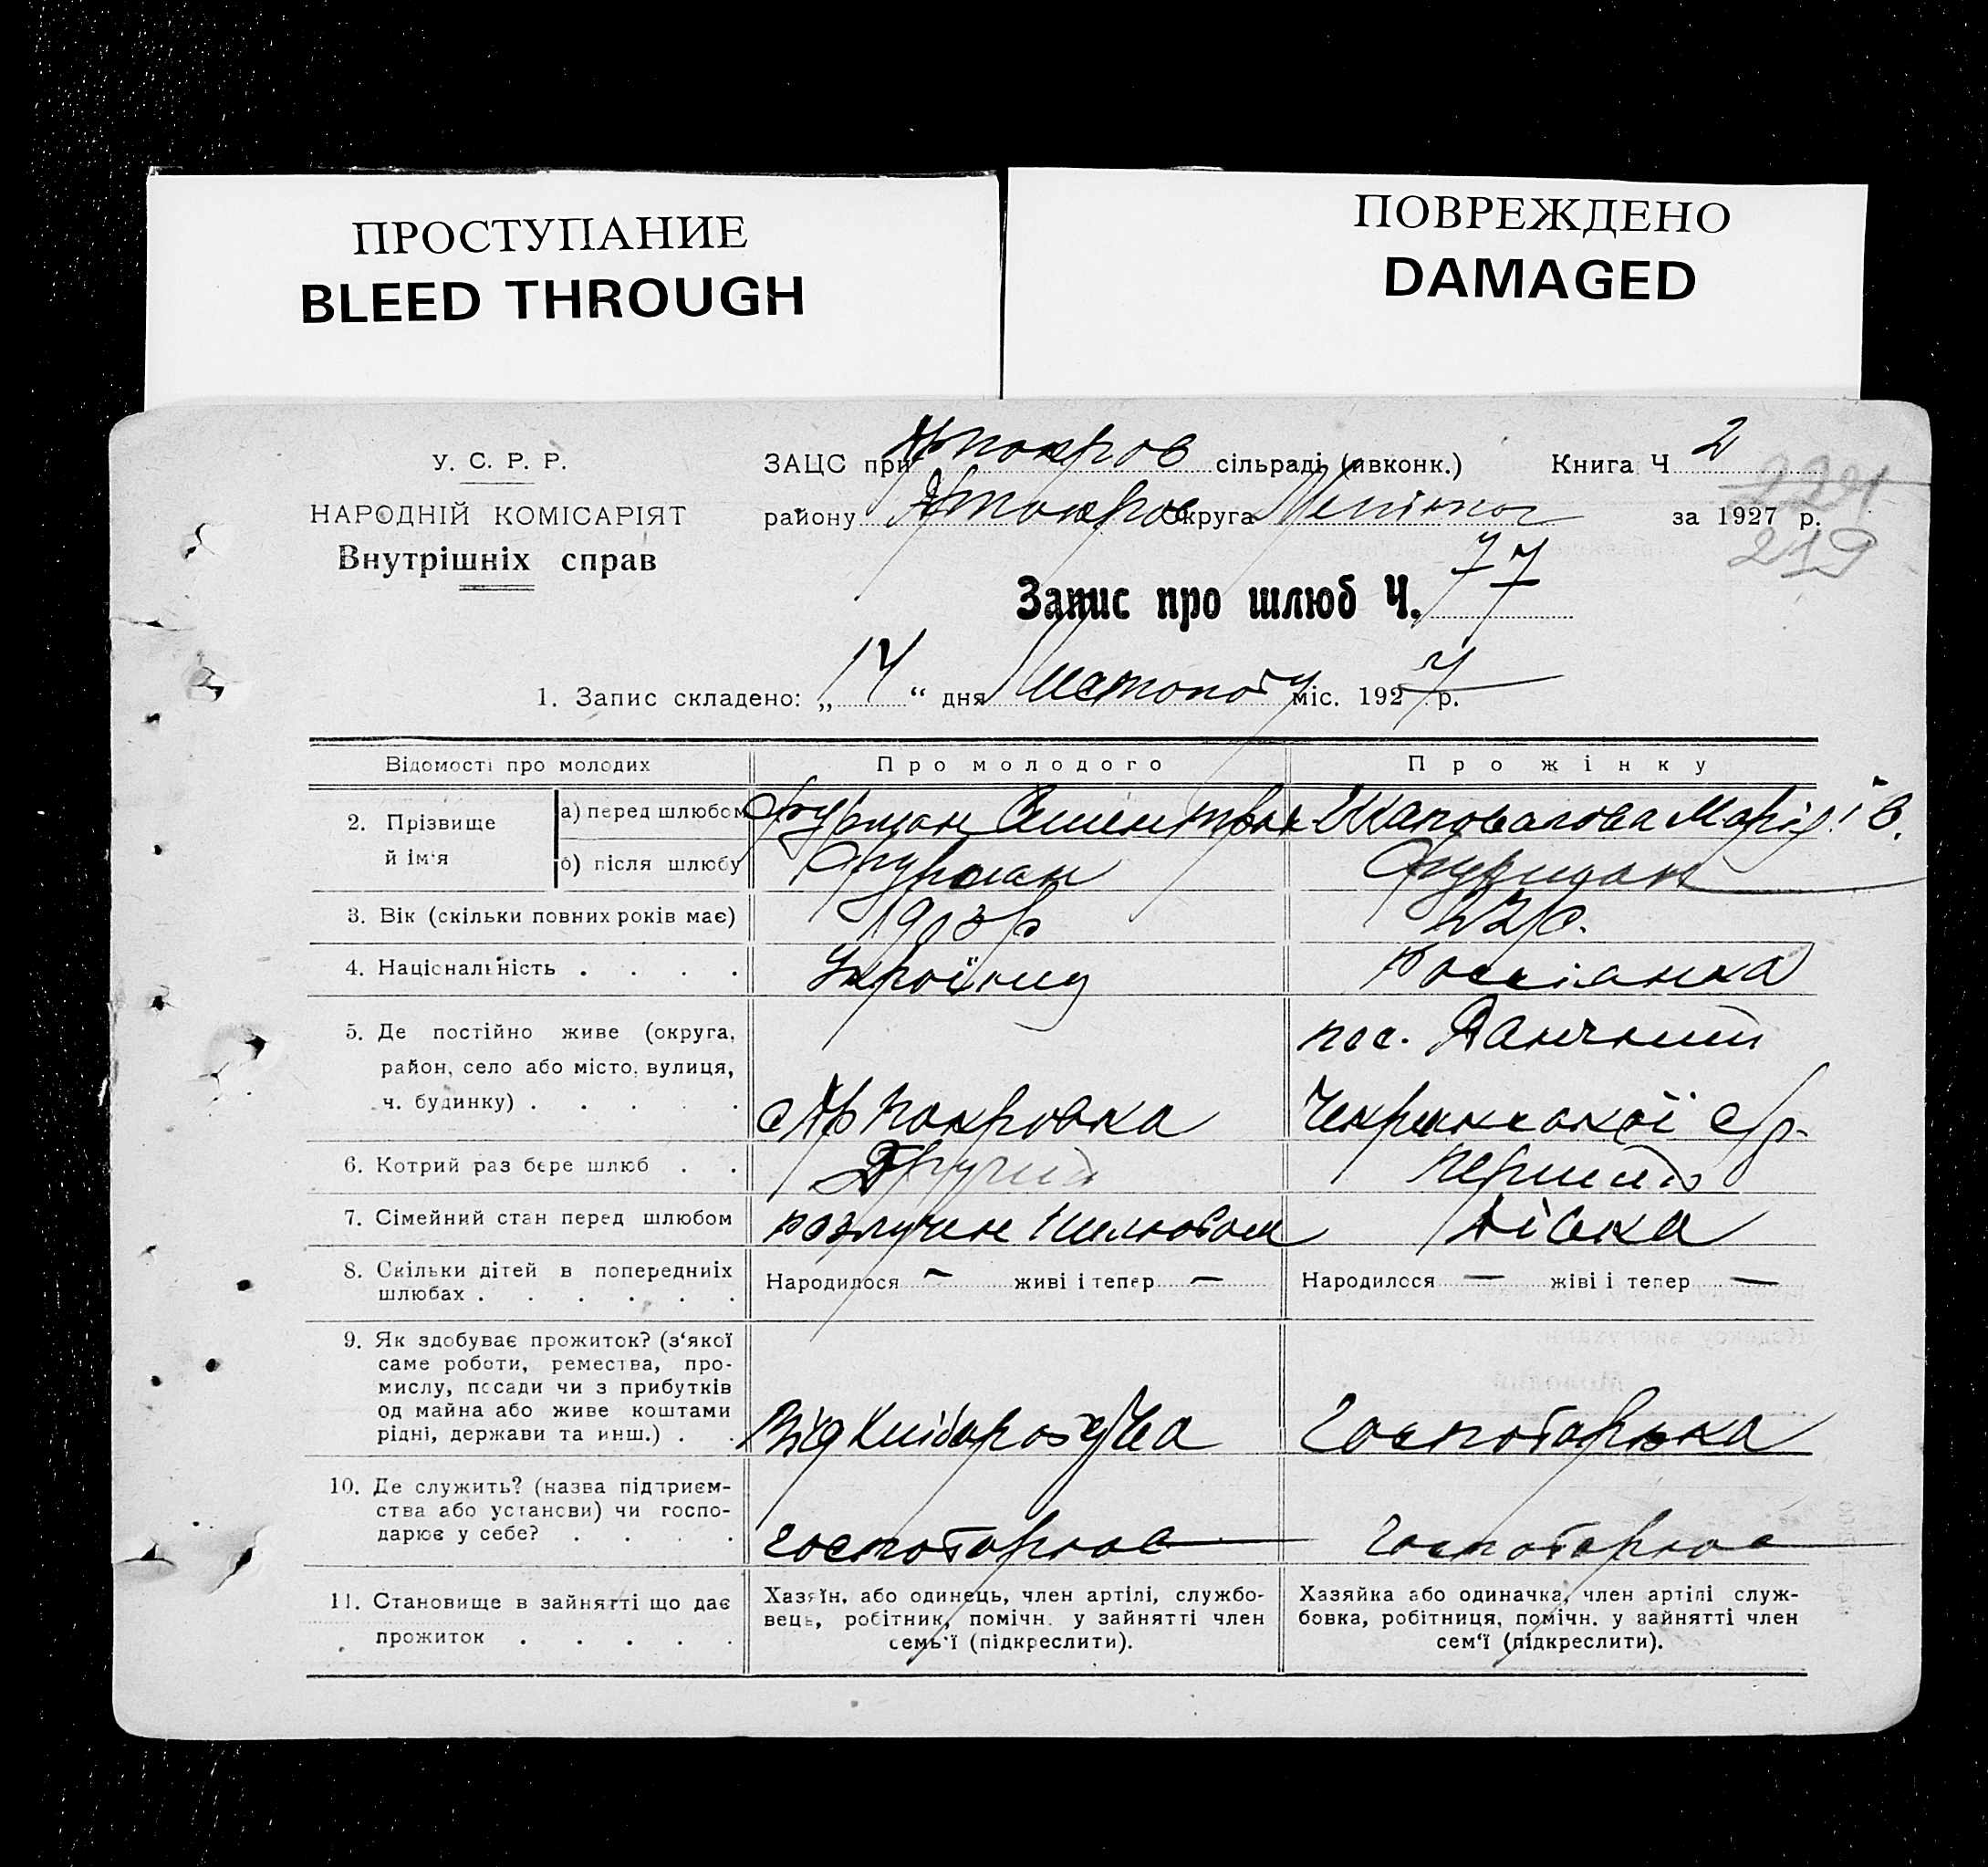 ПРОСТУПАНИЕ
BLEED THROUGH
ПОВРЕЖДЕНО
DAMAGED
У. С. Р. Р.
НАРОДНІЙ КОМІСАРІЯТ
Внутрішніх справ
ЗАЦС при Арпокров сільраді (ивконк.) Книга Ч 2
району округа за 1927 р.
221
219
Запис про шлюб Ч. 77
1. Запис складено: „ 14 “ дня Листоподу міс. 1927 р.
Відомості про молодих Про молодого Про жінку
2. Прізвище й ім'я
а) перед шлюбом Фурман Шаповалова Марія
б) після шлюбу Фурман Фурман
3. Вік (скільки повних років має) 1903 р 22 р.
4. Національність . . . . Україниц Россіанка
5. Де постійно живе (округа, район, село або місто, вулиця, ч. будинку) . . . . .
с Ар Покровка
пос. с/р.
6. Котрий раз бере шлюб . . Другий перший
7. Сімейний стан перед шлюбом розлучен шлюбом дівка
8. Скільки дітей в попередниіх шлюбах . . . . . .
Народилося — живі і тепер —
Народилося — жіві і тепер —
9. Як здобуває прожиток? (з'якої саме роботи, ремества, промислу, посади чи з прибутків од майна або живе коштами рідні, держави та инш.) . .
Від Господарька
10. Де служить? (назва підприємства або установи) чи господарює у себе? . . . .
господарює господарює
11. Становище в зайнятті що дає прожиток . . . . .
Хазяїн, або одинець, член артілі, службовець, робітник, помічн. у зайнятті член семь'ї (підкреслити).
Хазяйка або одиначка, член артілі службовка, робітниця, помічн. у зайнятті член сем'ї (підкреслити).